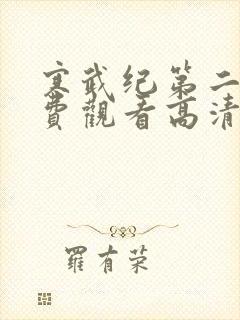 寒武纪第二
費觀看高清
羅有荣